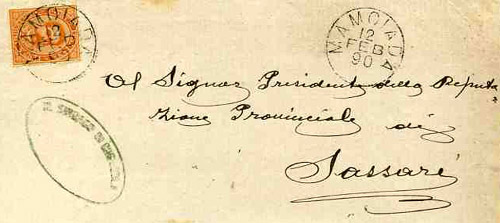 MAMOIADA
12
FEB
90
MAMOIADA
12
FEB
90
Al Signor Presidente della Deputa
zione Provinciale di
Sassari
IL SINDACO DI